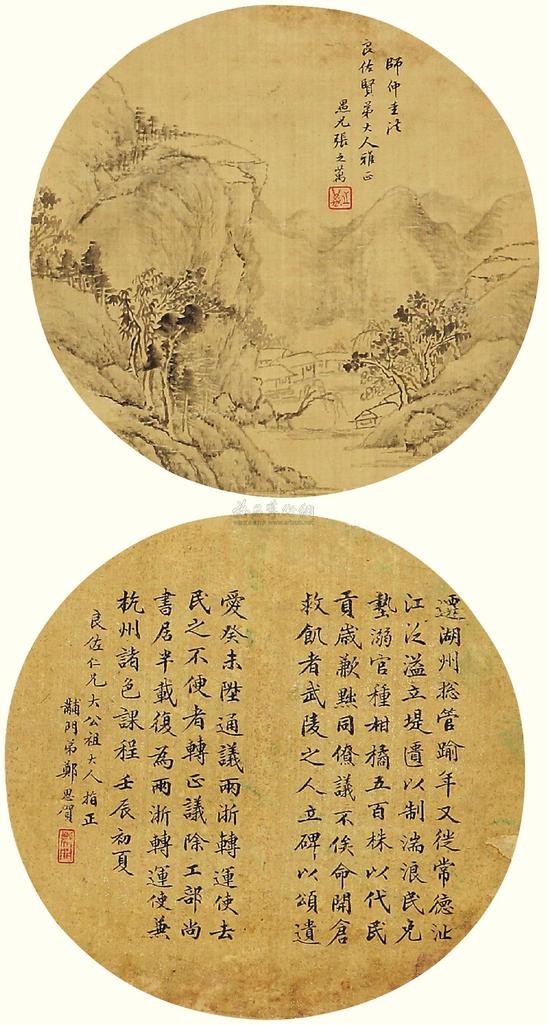 師仲圭法
良佐賢弟大人雅正
愚兄張之萬
遷湖州捴管踰年又徙常德沚
江泛溢立堤圍以制湍浪民免
墊溺官種柑橘五百株以代民
貢歲歉黜同僚議不俟命開倉
救飢者武陵之人立碑以頌遺
愛癸未陞通議兩浙轉運使去
民之不便者轉正議除工部尚
書居半載復為兩浙轉運使兼
杭州諸色課程 壬辰初夏
良佐仁兄大公祖大人指正
黼門弟鄭思賀